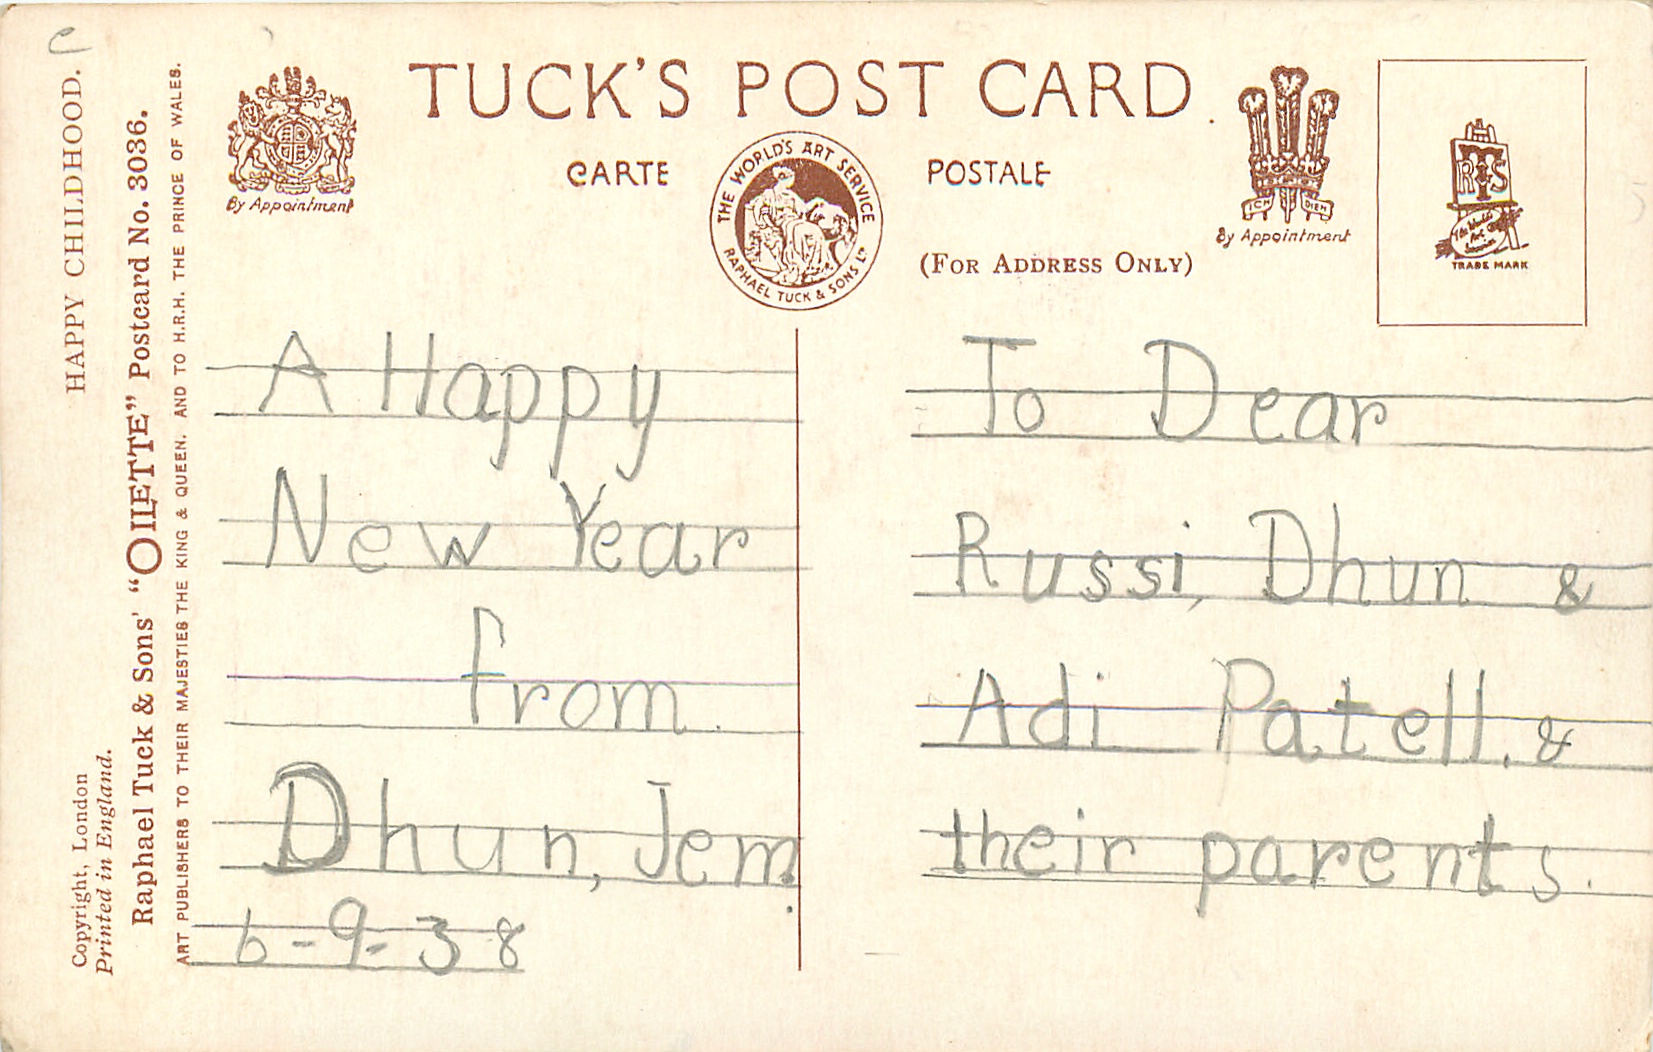 TUCK'S POST CARD
CARTE POSTALE
(FOR ADDRESS ONLY)
By Appointment
THE WORLD'S ART SERVICE
RAPHAEL TUCK & SONS LTD
ICH DIEN
By Appointment
R T S
The World's Art Service
TRADE MARK
HAPPY CHILDHOOD.
Copyright, London
Printed in England.
Raphael Tuck & Sons' "OILETTE" Postcard No. 3036.
ART PUBLISHERS TO THEIR MAJESTIES THE KING & QUEEN, AND TO H.R.H. THE PRINCE OF WALES.
A Happy
New Year
from
Dhun, Jem.
6-9-38
To Dear
Russi, Dhun &
Adi Patell, &
their parents.